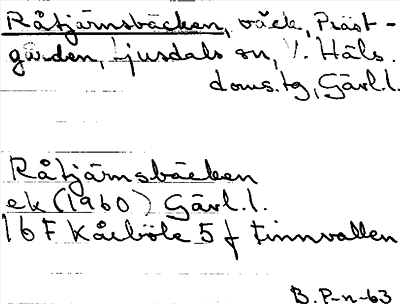 Råtjärnsbäcken, bäck, Präst-
gården, Ljusdals sn, V. Häls.
doms.tg, Gävl.l.
Råtjärnsbäcken
ek (1960) Gävl.l.
16F Kårböle 5f Finnvallen
B.P-n-63